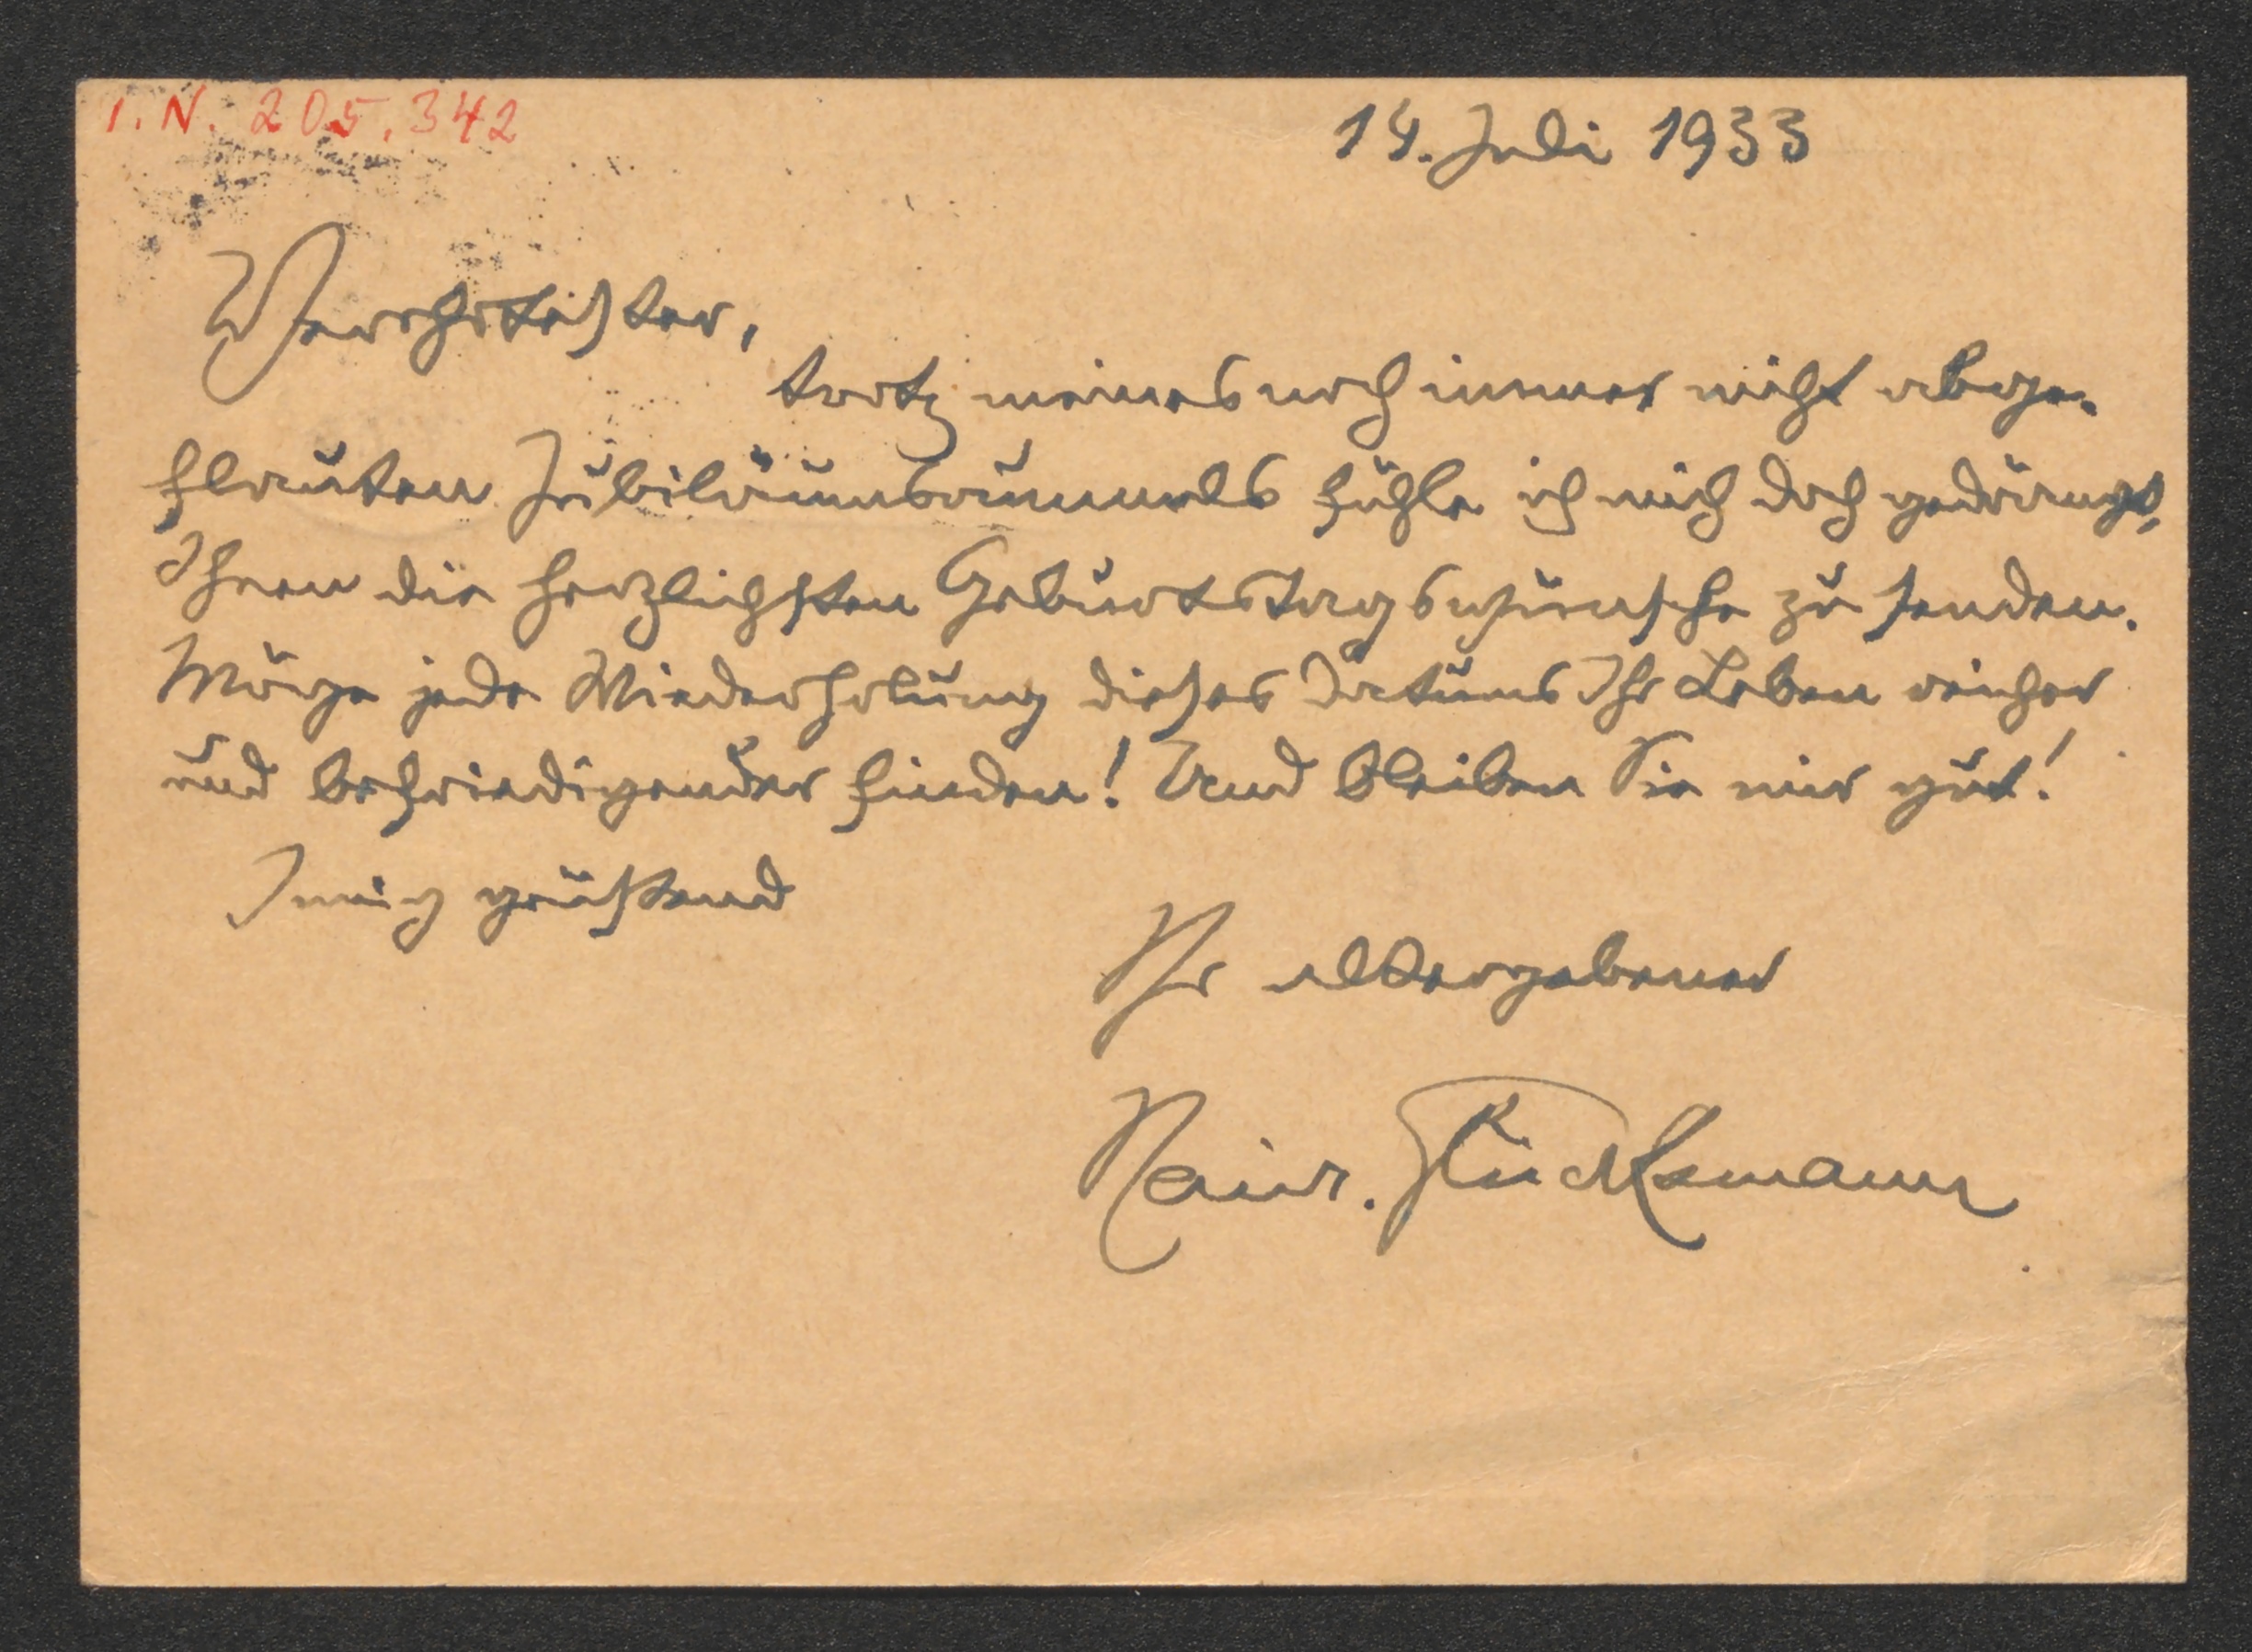 I. N. 205.342
14. Juli 1933
Verehrtester,
trotz meines noch immer nicht abge-
flauten Jubiläumsrummels fühle ich mich doch gedrängt,
Ihnen die herzlichsten Geburtstagswünsche zu senden.
Möge jede Wiederholung dieses Datums Ihr Leben reicher
und befriedigender finden! Und bleiben Sie mir gut!
Innig grüßend
Ihr altergebener
Heinr. Glücksmann